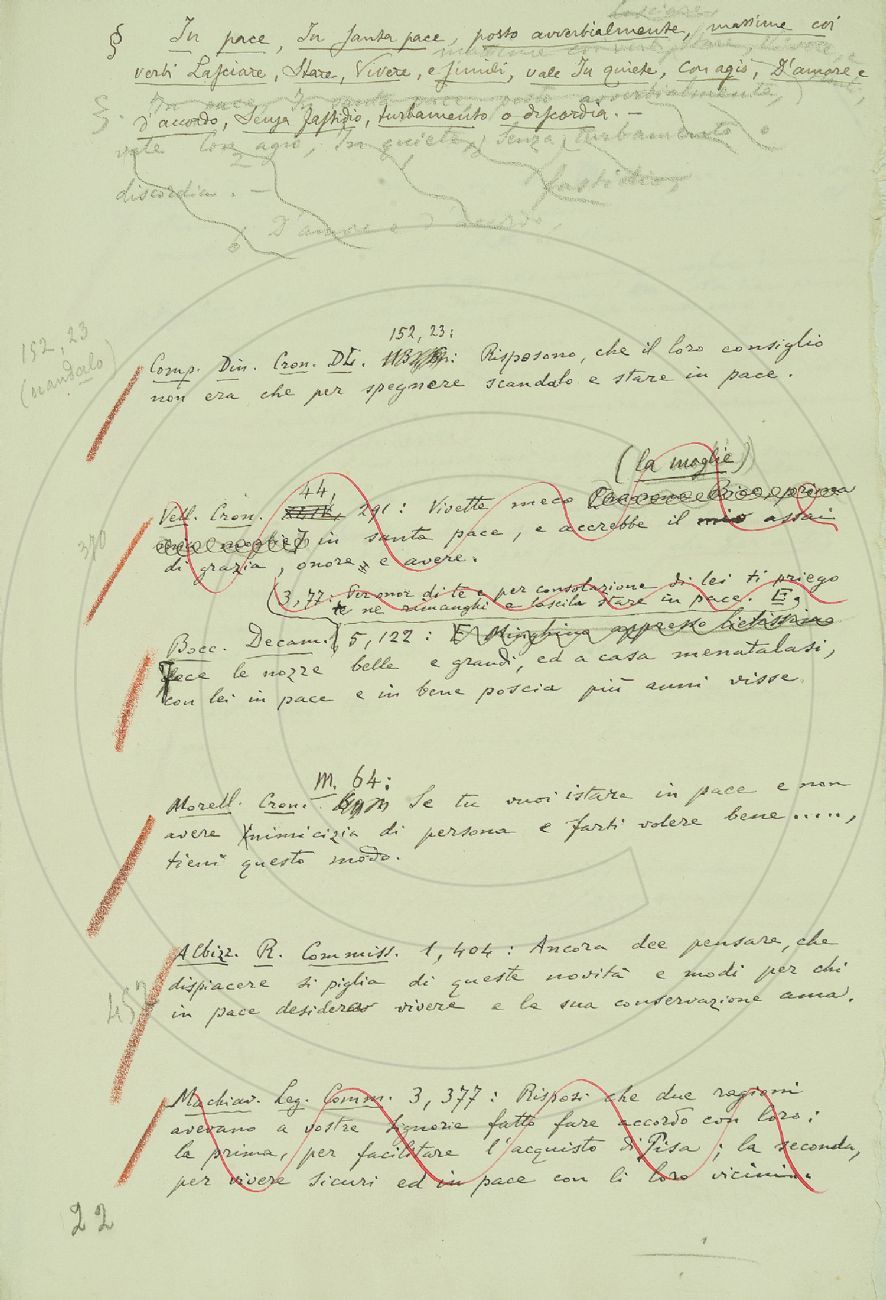 § In pace, In santa pace, posto avverbialmente, massime coi
verbi Lasciare, Stare, Vivere, e simili, vale In quiete, Con agio, D'amore e
d'accordo, Senza fastidio, turbamento o discordia. –
In pace, In santa pace posto avverbialmente,
vale Con agio, In quiete, Senza turbamento o
2
fastidio,
discordia. –
D'amore e d'accordo,
152, 23
(scandalo)
152, 23:
Comp. Din. Cron. DL. Risposono, che il loro consiglio
non era che per spegnere scandalo e stare in pace.
(la moglie)
44,
370
Vell. Cron. 291: Vivette meco
in santa pace, e accrebbe il mio assai
di grazia, onore e avere.
3,77: Per onor di te e per consolazione di lei ti priego
te ne rimanghi e lascila stare in pace. E,
Bocc. Decam. 5, 122: E Minghino appresso lietissimo
fece le nozze belle e grandi, ed a casa menatalasi,
con lei in pace e in bene poscia più anni visse.
M. 64:
Morell. Cron. Se tu vuoi istare in pace e non
avere inimicizia di persona e farti volere bene.....,
tieni questo modo.
457
Albizz. R. Commiss. 1, 404: Ancora dee pensare, che
dispiacere si piglia di queste novità e modi per chi
in pace desidera vivere e la sua conservazione ama.
Machiav. Leg. Comm. 3, 377: Risposi che due ragioni
avevano a vostre Signorie fatto fare accordo con loro;
la prima, per facilitare l'acquisto di Pisa; la seconda,
per vivere sicuri ed in pace con li loro vicini.
22